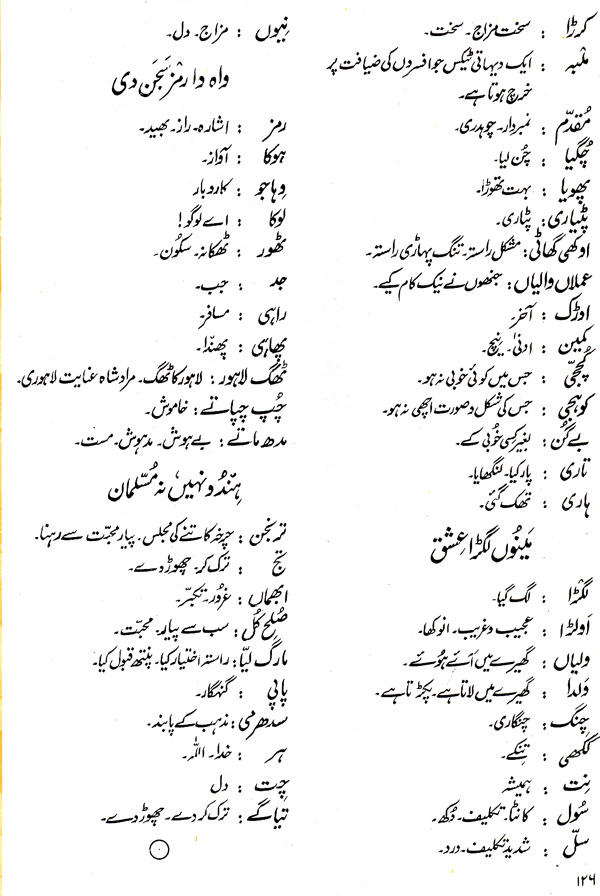 کرڑا : سخت مزاج۔ سخت۔
ملبہ : ایک دیہاتی ٹیکس جو افسروں کی ضیافت پر
خرچ ہوتا ہے۔
مُقدّم : نمبردار۔ چوہدری۔
چُگیا : چُن لیا۔
پھویا : بہت تھوڑا۔
پٹیاری : پٹاری۔
اوکھی گھاٹی : مشکل راستہ۔ تنگ پہاڑی راستہ۔
عملاں والیاں : جنھوں نے نیک کام کیے۔
اوڑک : آخر۔
کمین : ادنیٰ۔ نیچ۔
کُچجّی : جس میں کوئی خوبی نہ ہو۔
کوہجی : جس کی شکل و صورت اچھی نہ ہو۔
بے گُن : بغیر کسی خوبی کے۔
تاری : پار کیا۔ لنگھایا۔
ہاری : تھک گئی۔
مَینُوں لگڑا عِشق
لگڑا : لگ گیا۔
اَولڑا : عجیب و غریب۔ انوکھا۔
ولیاں : گھیرے میں آئے ہُوئے۔
وَلدا : گھیرے میں لاتا ہے۔ پکڑتا ہے۔
چِنگ : چنگاری۔
ککھی : تِنکے۔
نِت : ہمیشہ
سُول : کانٹا۔ تکلیف۔ دُکھ۔
سلّ : شدید تکلیف۔ درد۔
نِیوں : مزاج۔ دل۔
واہ دا رمز سَجَن دی
رمز : اشارہ۔ راز۔ بھید۔
ہوکا : آواز۔
وِہاجو : کاروبار
لوکا : اے لوگو!
ٹھور : ٹھکانہ۔ سکُون۔
جد : جب۔
راہی : مسافر۔
پھاہی : پھندا۔
ٹھگ لاہور : لاہور کا ٹھگ۔ مراد شاہ عنایت لاہوری۔
چُپ چپاتے : خاموش۔
مدھ ماتے : بے ہوش۔ مدہوش۔ مست۔
ہِندُو نہیں نہ مُسّلمان
ترنجن : چرخہ کاتنے کی مجلس۔ پیار محبّت سے رہنا۔
تج : ترک کر۔ چھوڑ دے۔
ابھماں : غرُور۔ تکبّر۔
صُلح کُل : سب سے پیار۔ محبّت۔
مارگ لیّا : راستہ اختیار کیا۔ پنتھ قبول کیا۔
پاپی : گنہگار۔
سدھرمی : مذہب کے پابند۔
ہر : خدا۔ اللہ۔
چِت : دل
تیاگے : ترک کر دے۔ چھوڑ دے۔
۱۲۶